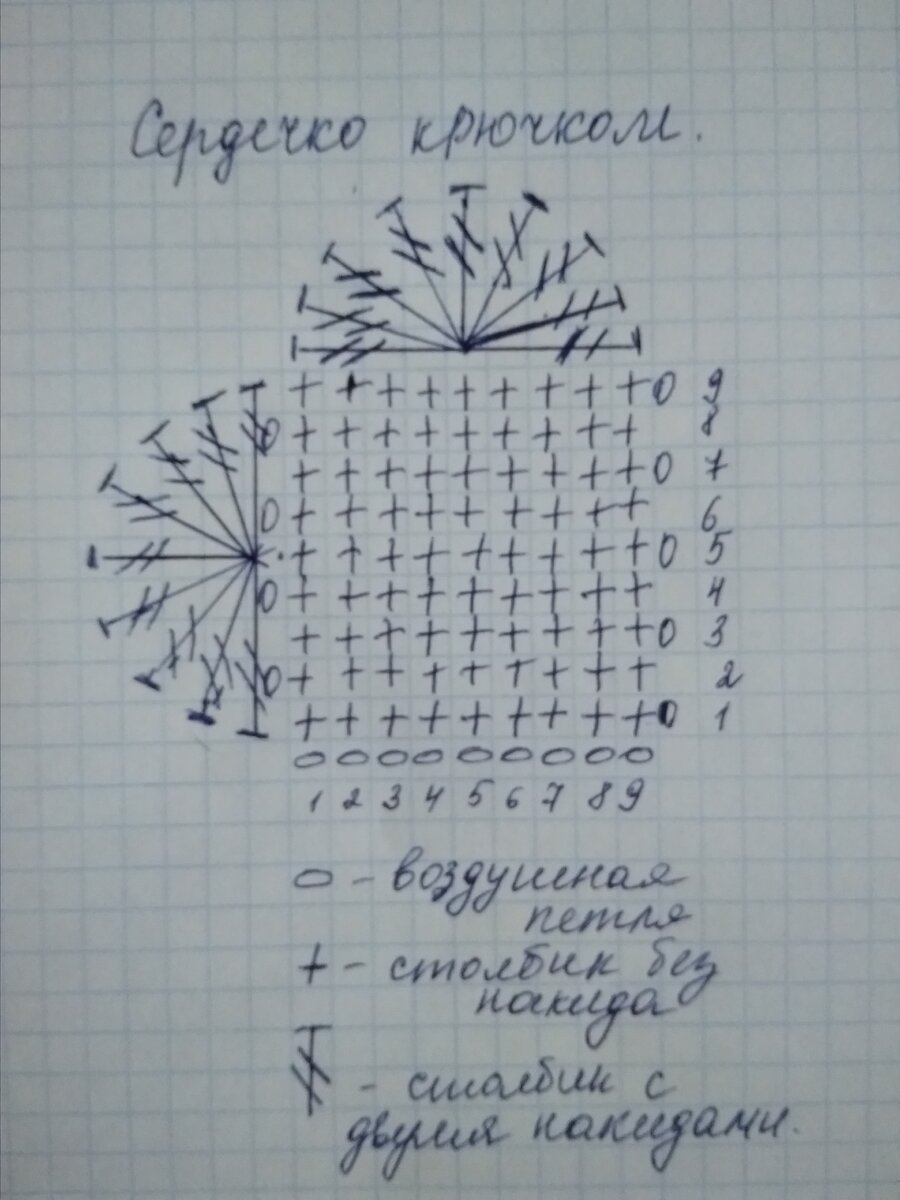 Сердечко крючком.
+ + + + + + + + + 0 9
0 + + + + + + + + + 8
+ + + + + + + + + 0 7
0 + + + + + + + + + 6
+ + + + + + + + + 0 5
0 + + + + + + + + + 4
+ + + + + + + + + 0 3
0 + + + + + + + + + 2
+ + + + + + + + + 0 1
0 0 0 0 0 0 0 0 0
1 2 3 4 5 6 7 8 9
0 - воздушная
петля
+ - столбик без
накида
- столбик с
двумя накидами.